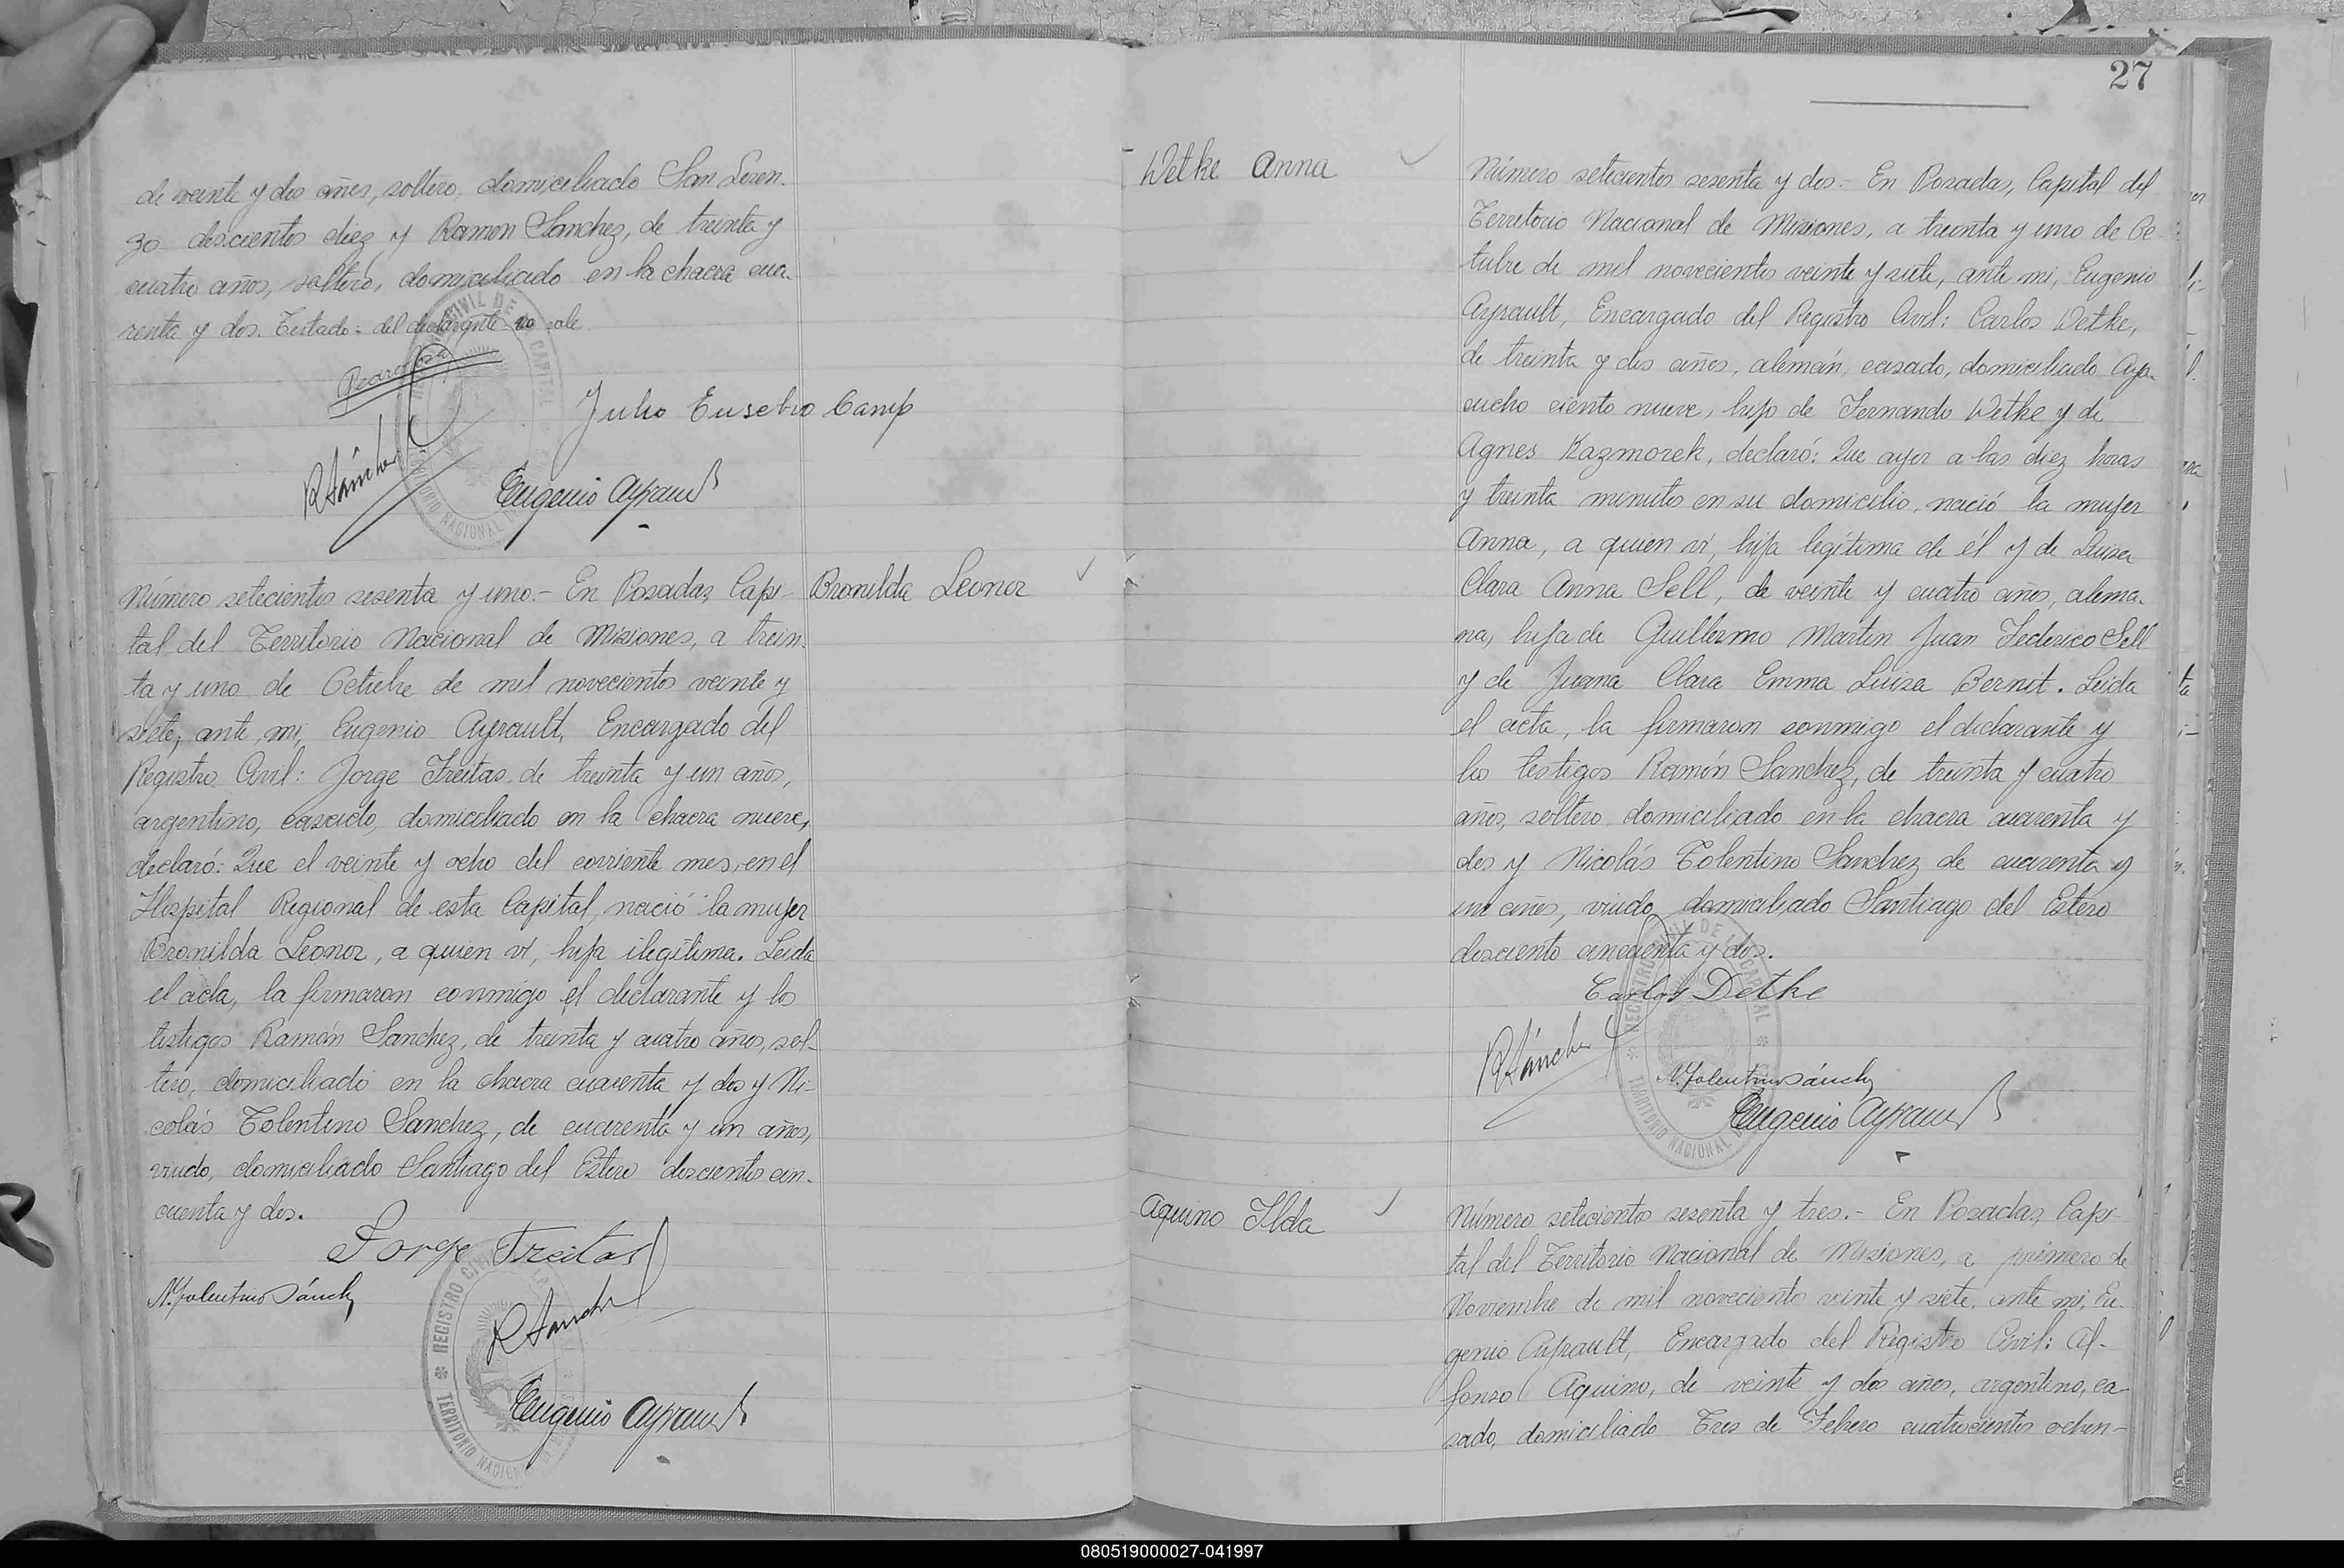 de veinte y dos años, soltero, domiciliado San Loren-
zo doscientos diez y Ramon Sanchez, de treinta y
cuatro años, soltero, domiciliado en la chacra cua-
renta y dos. Testado: del declarante no vale
Julio Eusebio Camp
RSánchez
Eugenio Ayrault
Bronilda Leonor
Número setecientos sesenta y uno.- En Posadas, Capi-
tal del Territorio Nacional de Misiones, a trein-
ta y uno de Octubre de mil novecientos veinte y
siete, ante mi, Eugenio Ayrault, Encargado del
Registro Civil: Jorge Freitas, de treinta y un años,
argentino, casado, domiciliado en la chacra nueve,
declaró: Que el veinte y ocho del corriente mes, en el
Hospital Regional de esta Capital, nació la mujer
Bronilda Leonor, a quien ví, hija ilegítima. Leida
el acta, la firmaron conmigo el declarante y los
testigos Ramón Sanchez, de treinta y cuatro años, sol-
tero, domiciliado en la chacra cuarenta y dos y Ni-
colás Tolentino Sanchez, de cuarenta y un años,
viudo, domiciliado Santiago del Estero doscientos cin-
cuenta y dos.
Jorge Freitas
N. Tolentino Sánchez
RSanchez
REGISTRO CIVIL DE LA CAPITAL
TERRITORIO NACIONAL DE MISIONES
Eugenio Ayrault
27
Wetke Anna
Número setecientos sesenta y dos.- En Posadas, Capital del
Territorio Nacional de Misiones, a treinta y uno de Oc-
tubre de mil novecientos veinte y siete, ante mi, Eugenio
Ayrault, Encargado del Registro Civil: Carlos Wetke,
de treinta y dos años, alemán, casado, domiciliado Aya-
cucho ciento nueve, hijo de Fernando Wetke y de
Agnes Kazmorek, declaró: Que ayer a las diez horas
y treinta minutos en su domicilio, nació la mujer
Anna, a quien ví, hija legítima de él y de Luisa
Clara Anna Sell, de veinte y cuatro años, alema-
na, hija de Guillermo Martin Juan Federico Sell
y de Juana Clara Emma Luisa Bernit. Leida
el acta, la firmaron conmigo el declarante y
los testigos Ramón Sanchez, de treinta y cuatro
años, soltero, domiciliado en la chacra cuarenta y
dos y Nicolás Tolentino Sanchez de cuarenta y
un años, viudo, domiciliado Santiago del Estero
dosciento cincuenta y dos.
Carlos Detke
RSánchez
N. Tolentino Sánchez
Eugenio Ayrault
Aquino Ilda
Número setecientos sesenta y tres.- En Posadas, Capi-
tal del Territorio Nacional de Misiones, a primero de
Noviembre de mil novecientos veinte y siete, ante mi, Eu-
genio Ayrault, Encargado del Registro Civil: Al-
fonso Aquino, de veinte y dos años, argentino, ca-
sado, domiciliado Tres de Febrero cuatrocientos ochen-
080519000027-041997